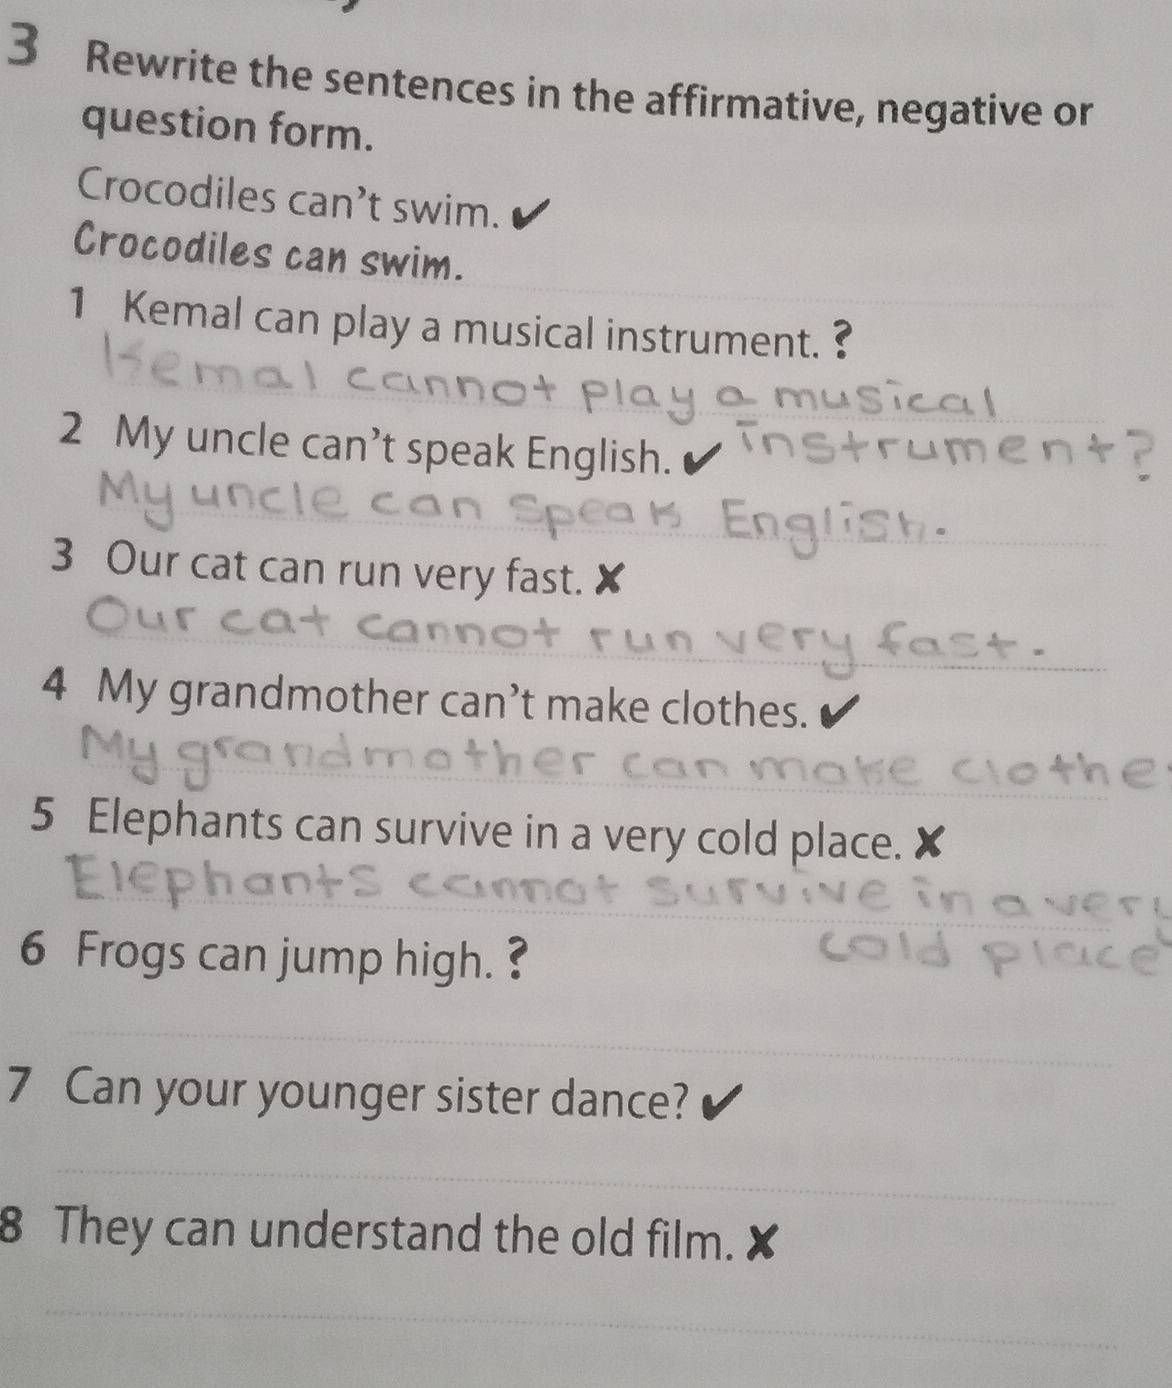 3 Rewrite the sentences in the affirmative, negative or
question form.
Crocodiles can't swim. ✔
Crocodiles can swim.
1 Kemal can play a musical instrument. ?
Kemal cannot play a musical
instrument?
2 My uncle can't speak English. ✔
My uncle can speak English.
3 Our cat can run very fast. ✘
Our cat cannot run very fast.
4 My grandmother can't make clothes. ✔
My grandmother can make clothe
5 Elephants can survive in a very cold place. ✘
Elephants cannot survive in a very
cold place
6 Frogs can jump high. ?
7 Can your younger sister dance? ✔
8 They can understand the old film. ✘